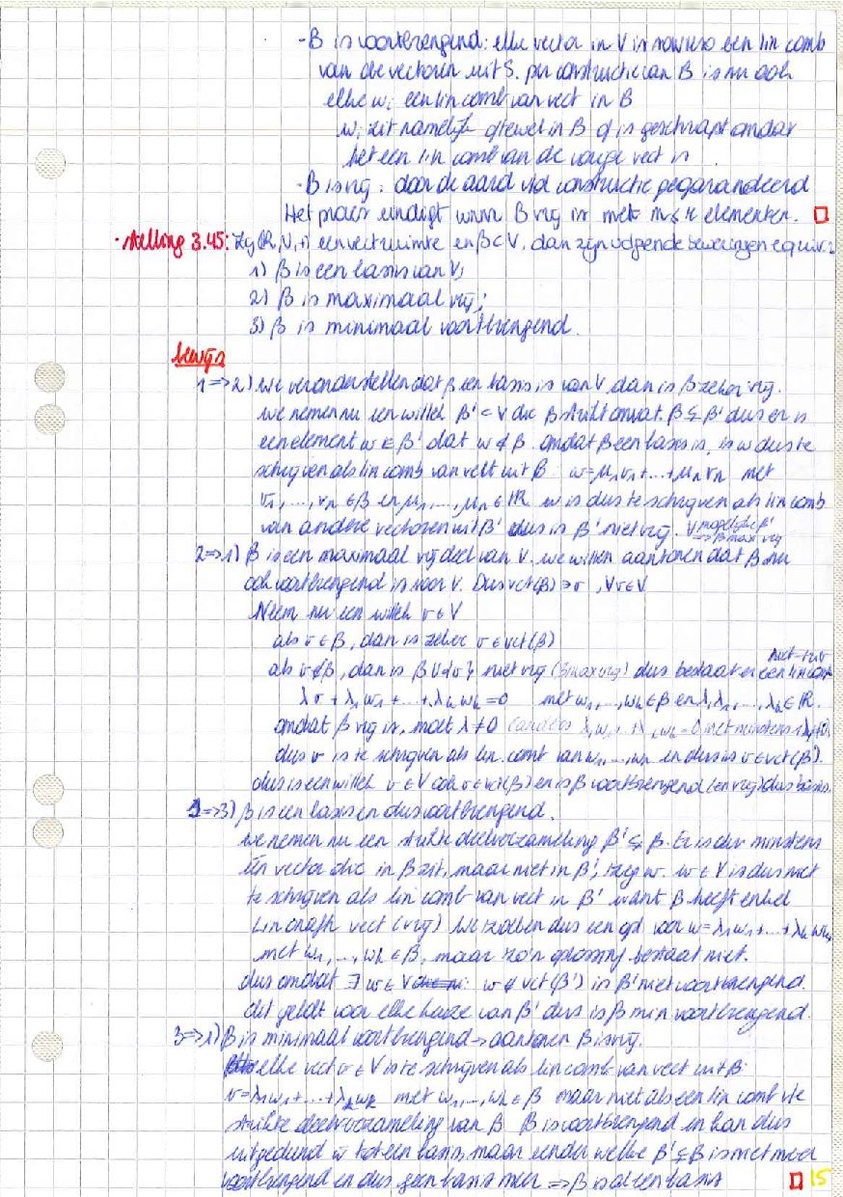 - B is voortbrengend: elke vector in V is sowieso een lin comb
van de vectoren uit S. per constructie van B is nu ook
elke wᵢ een lin comb van vect in B
wᵢ zit namelijk oftewel in B of is geschrapt omdat
het een lin comb van de vorige vect is
- B is vrij: door de aard vd constructie gegarandeerd
Het proces eindigt wnr B vrij is met m ≤ k elementen. □
• stelling 3.45: Zij (ℝ,V,+) een vectruimte en β ⊂ V, dan zijn volgende beweringen equiv.:
1) β is een basis van V;
2) β is maximaal vrij;
3) β is minimaal voortbrengend.
bewijs
1=>2) we veronderstellen dat β een basis is van V, dan is β zeker vrij.
we nemen nu een willek β' ⊂ V die β strikt omvat. β ⊊ β' dus er is
een element w ∈ β' dat w ∉ β. omdat β een basis is, is w dus te
schrijven als lin comb van vect uit β: w = μ₁v₁ + ... + μₙvₙ met
v₁, ..., vₙ ∈ β en μ₁, ..., μₙ ∈ ℝ w is dus te schrijven als lin comb
van andere vectoren uit β' dus is β' niet vrij. ∀ mogelijke β' => β max vrij
2=>1) β is een maximaal vrij deel van V. we willen aantonen dat β nu
ook voortbrengend is voor V. Dus vct(β) ∋ v, ∀v ∈ V
Neem nu een willek v ∈ V
als v ∈ β, dan is zeker v ∈ vct(β)
als v ∉ β, dan is β ∪ {v} niet vrij (β max vrij) dus bestaat er een niet-triv lin comb
λv + λ₁w₁ + ... + λₖwₖ = 0 met w₁, ..., wₖ ∈ β en λ, λ₁, ..., λₖ ∈ ℝ.
omdat β vrij is, moet λ ≠ 0 (anders λ₁w₁ + ... wₖ = 0 met minstens 1 λᵢ ≠ 0)
dus v is te schrijven als lin. comb van w₁, ..., wₖ en dus is v ∈ vct(β).
dus is een willek v ∈ V ook v ∈ vct(β) en is β voortbrengend (en vrij) dus basis.
1=>3) β is een basis en dus voortbrengend.
we nemen nu een strikte deelverzameling β' ⊊ β. Er is dus minstens
één vector die in β zit, maar niet in β', zeg w. w ∈ V is dus niet
te schrijven als lin comb van vect in β' want β heeft enkel
lin onafh vect (vrij) We zoeken dus een opl voor w = λ₁w₁ + ... + λₖwₖ
met w₁, ..., wₖ ∈ β, maar zo'n oplossing bestaat niet.
dus omdat ∃ w ∈ V: w ∉ vct(β') is β' niet voortbrengend.
dit geldt voor elke keuze van β' dus is β min voortbrengend.
3=>1) β is minimaal voortbrengend -> aantonen β is vrij.
elke vect v ∈ V is te schrijven als lin comb van vect uit β:
v = λ₁w₁ + ... + λₖwₖ met w₁, ..., wₖ ∈ β maar niet als een lin comb
strikte deelverzameling van β β is voortbrengend en kan dus
uitgedund w tot een basis, maar eender welke β' ⊊ β is niet meer
voortbrengend en dus geen basis meer => β is al een basis □ 15